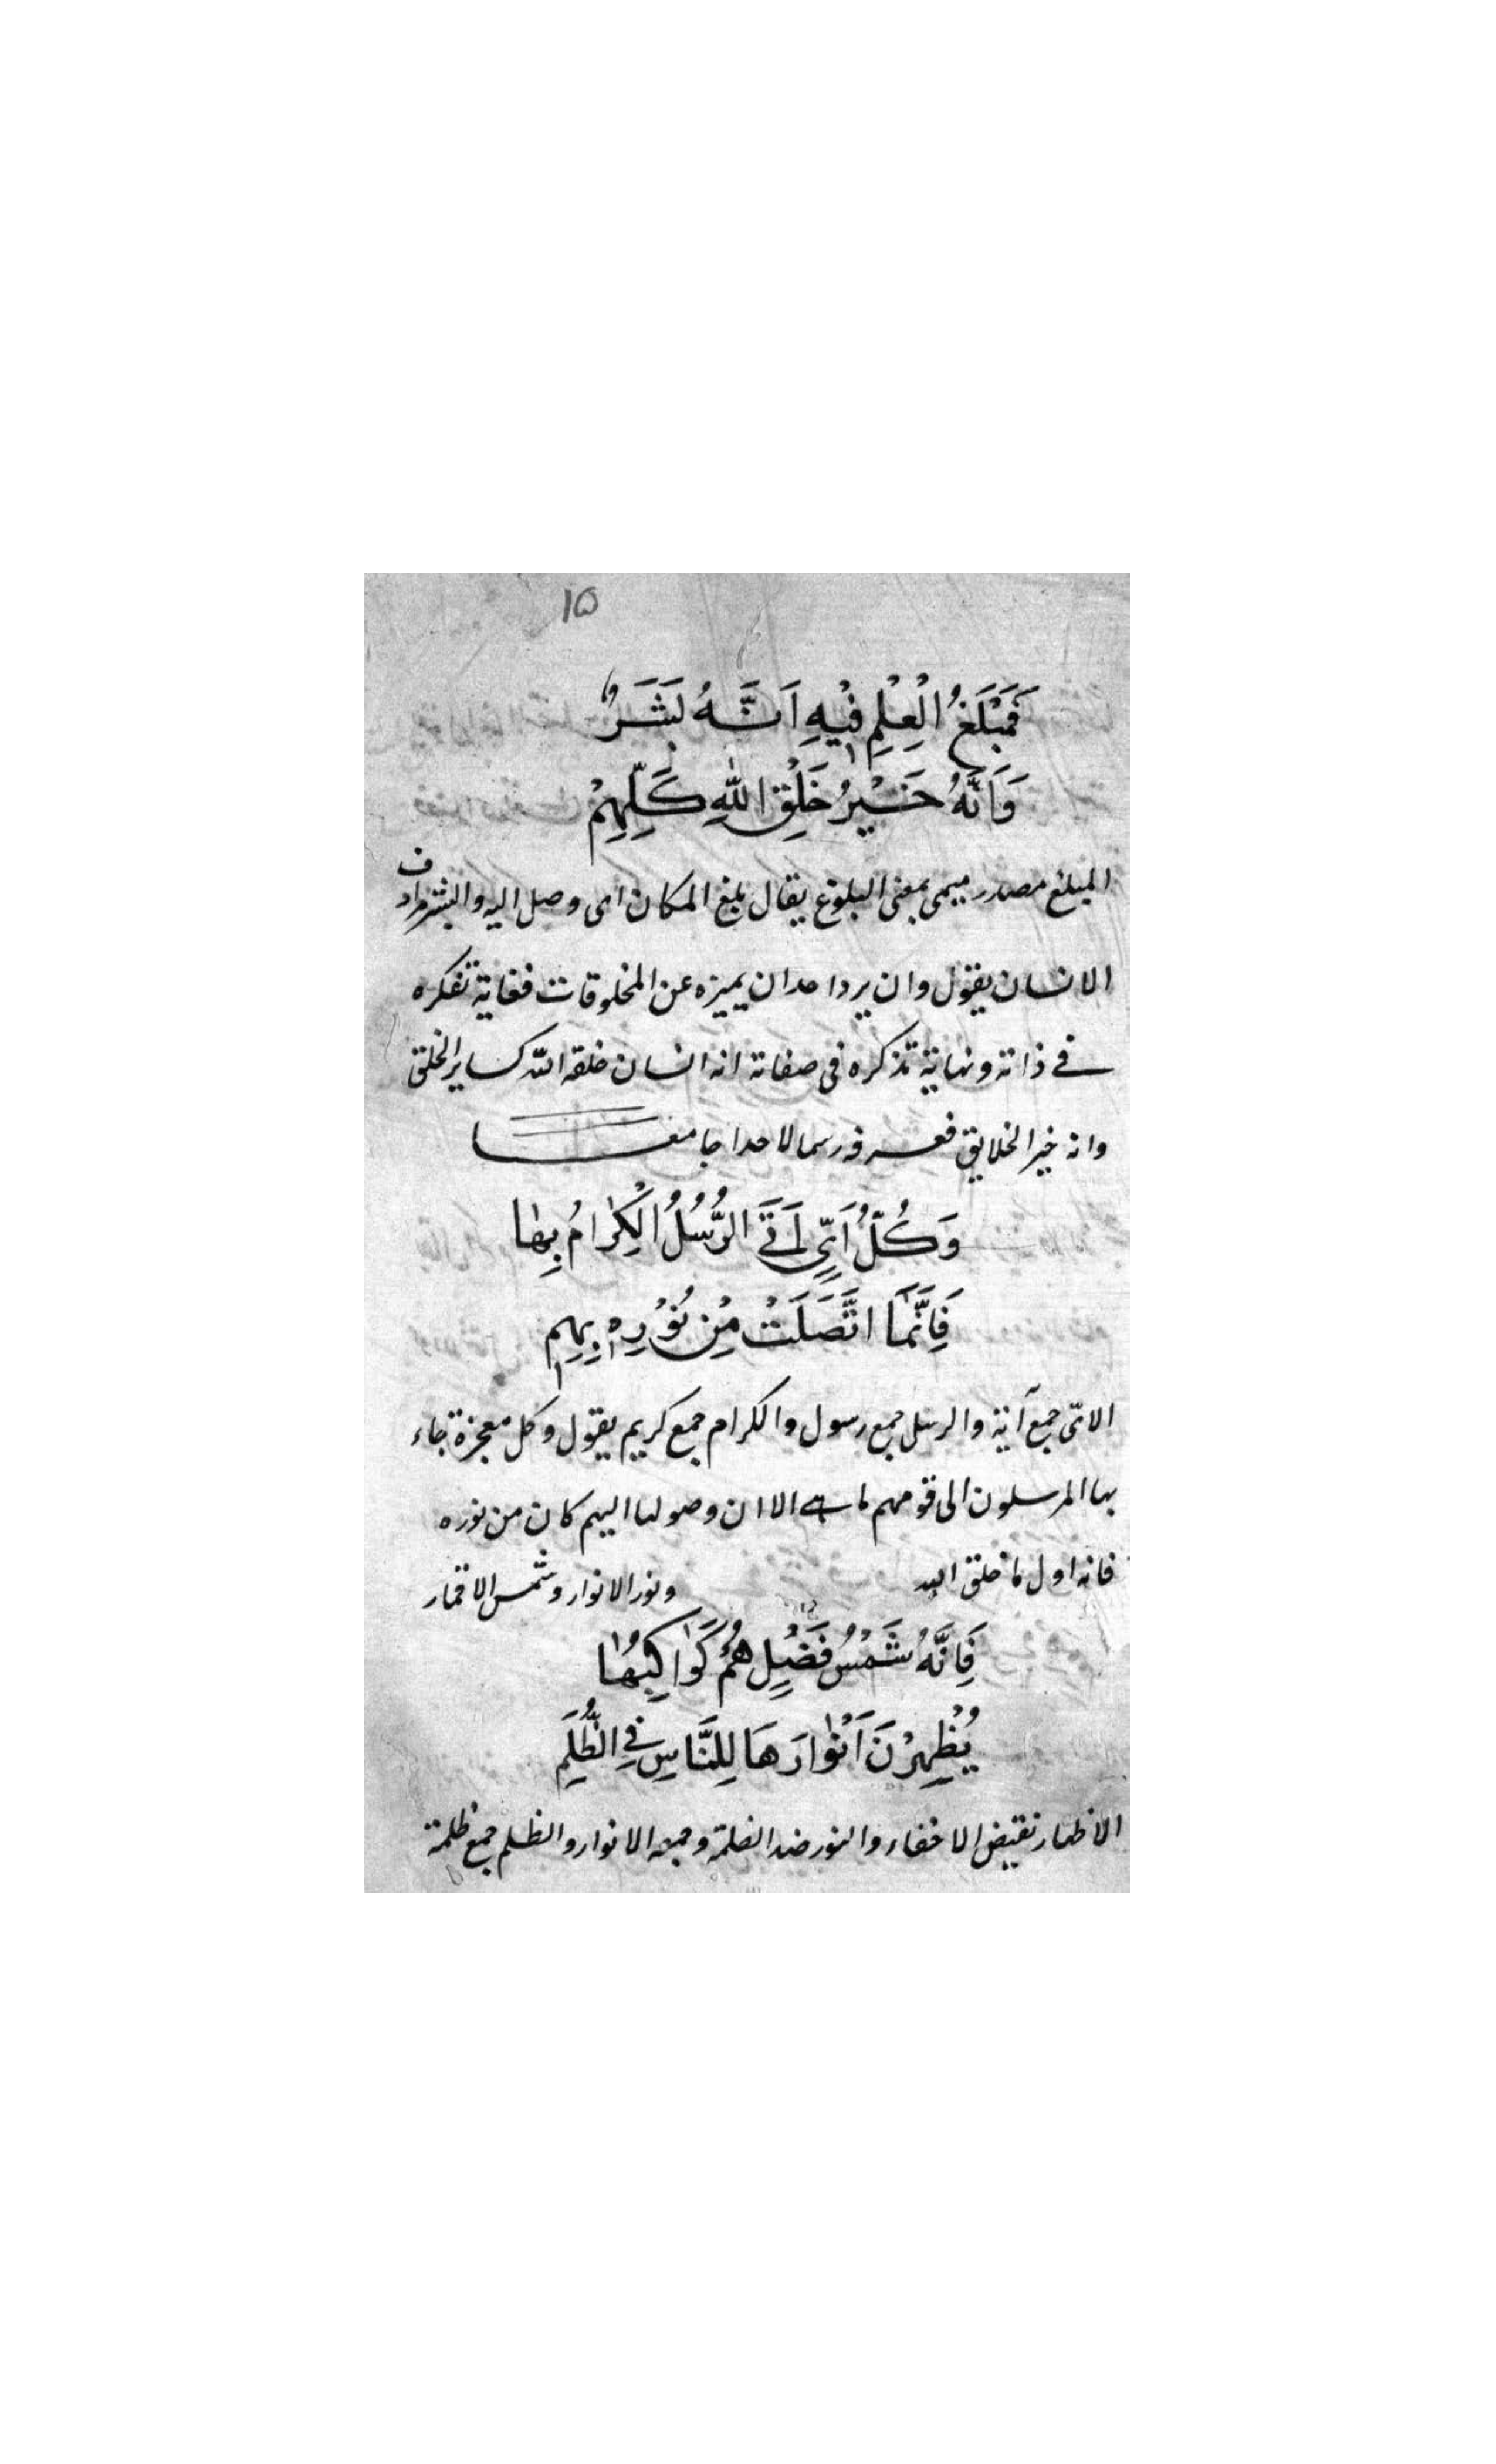 ١٥
فَمَبْلَغُ الْعِلْمِ فِيْهِ اَنَّهُ بَشَرٌ
وَاَنَّهُ خَيْرُ خَلْقِ اللّٰهِ كُلِّهِمْ
المبلغ مصدر ميمى بمعنى البلوغ يقال بلغ المكان اى وصل اليه والبشر مرادف
الانسان يقول وان يرد احد ان يميزه عن المخلوقات فغاية تفكره
فى ذاته ونهاية تذكره فى صفاته انه انسان خلقه الله كساير الخلق
وانه خير الخلايق فعرفه رسما لا حدا جامعا
وَكُلُّ اٰىٍ اَتَى الرُّسُلُ الْكِرَامُ بِهَا
فَاِنَّمَا اتَّصَلَتْ مِنْ نُوْرِهٖ بِهِمِ
الآى جمع آية والرسل جمع رسول والكرام جمع كريم يقول وكل معجزة جاء
بها المرسلون الى قومهم ما هى الا ان وصولها اليهم كان من نوره
فانه اول ما خلق الله ونور الانوار وشمس الاقمار
فَاِنَّهُ شَمْسُ فَضْلٍ هُمْ كَوَاكِبُهَا
يُظْهِرْنَ اَنْوَارَهَا لِلنَّاسِ فِى الظُّلَمِ
الاظهار نقيض الاخفاء والنور ضد الظلمة وجمعه الانوار والظلم جمع ظلمة